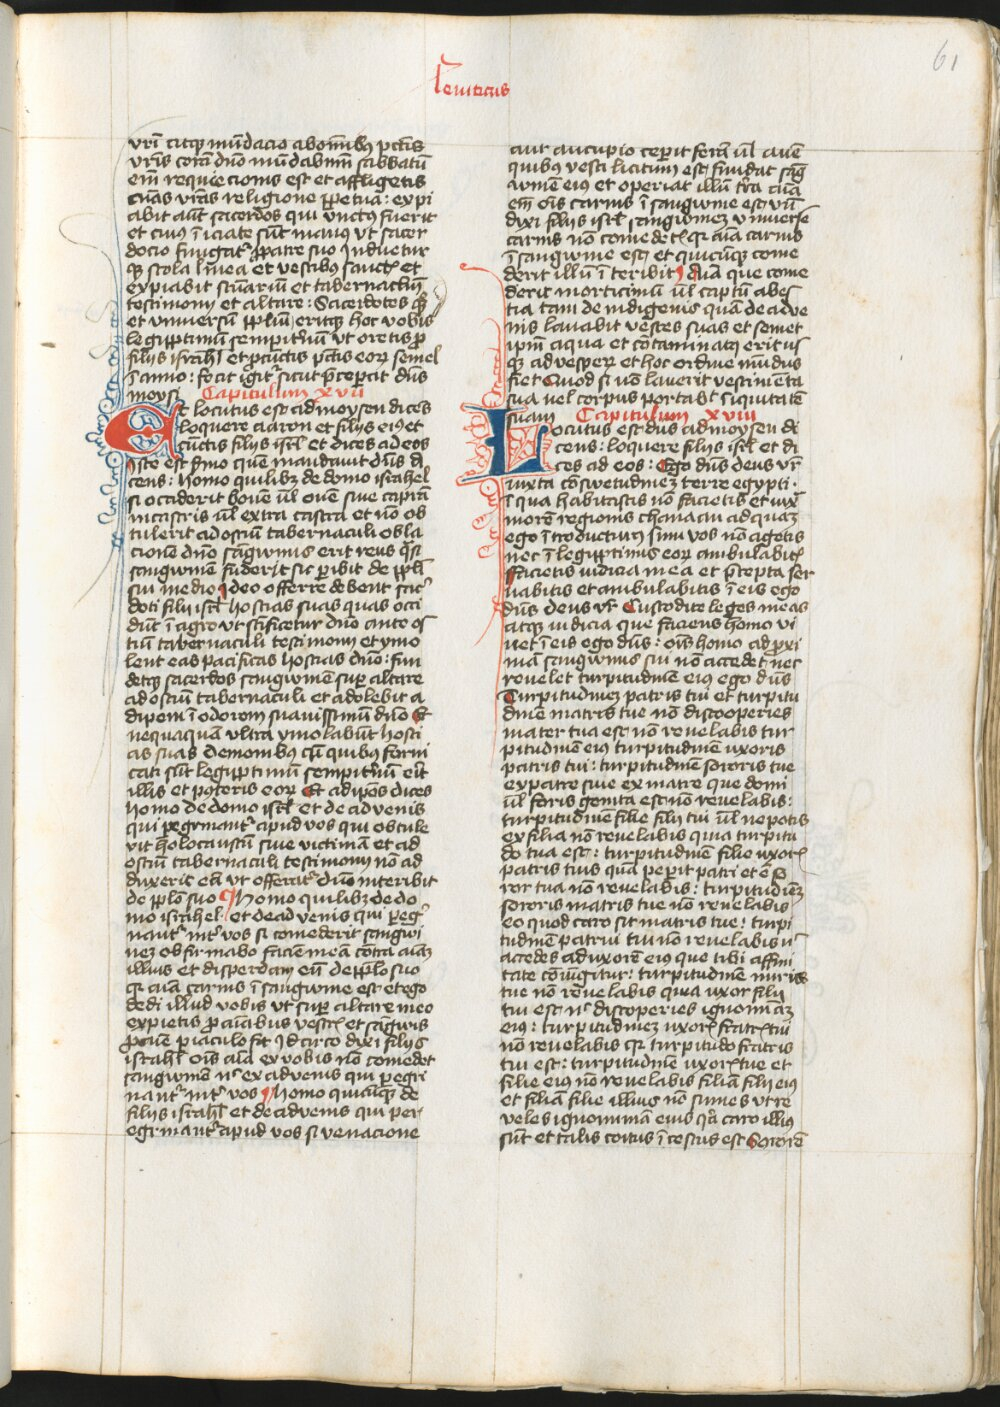 61
Leuiticus
vr̄i atq; mūdacio ab om̄ib; pctīs
vrīs corā dn̄o mūdabim̄ sabbatū
em̄ requiecionis est et affligetis
aīas vrās religione ꝑpetua: expi
abit aūt sacerdos qui vnctus fuerit
et cuius īiciate sūt manus vt sacer
docio fungat᷑ ꝓ patre suo Induetur
q; stola līnea et vestibus sanct᷑ et
expiabit sc̄uariū et tabernaclm̄
testimonij et altare: Sacerdotes q;
et vniuersū pplm̄ eritq; hoc vobis
legipptimum sempit̄num vt oretis ꝓ
filijs isrāhl et ꝓ cūctis pctīs eor̄ semel
ī anno: fecit igit᷑ sicut p̄ceperat dn̄s
moysi Capitulum xvii
Et locutus est ad moysen dicēs
loquere aaron et filijs eius et
cūctis filijs isrl̄ et dices ad eos
iste est sermo quē mandauit dn̄s di
cens: homo quilibꝫ de domo israhel
si occiderit bouē ūl ouē siue caprā
in castris ūl extra castra et nō ob
tulerit ad ostiū tabernaculi obla
cionē dn̄o sāgwinis erit reus q̄si
sangwinē fuderit sic ꝑibit de ppl̄i
sui medio ideo offerre debent sac᷑
doti filij isrl̄ hostias suas quas occi
dūt ī agro vt sc̄ificetur dn̄o ante os
tiū tabernaculi testimonij et ymo
lent eas pacificas hostias dn̄o: fun
detq; sacerdos sangwinē suꝑ altare
ad ostiū tabernaculi et adolebit a
dipem ī odorem suauissimū dn̄o Et
nequaquā vltra ymolabūt hosti
as suas demonibꝫ cū quibꝫ forni
cati sūt legipptimū sempit̄nū erit
illis et posteris eor̄ Et ad ip̄os dices
homo de domo isrl̄ et de advenis
qui pegrinant᷑ apud vos qui obtule
rit holocaustū siue victimā et ad
ostiū tabernaculi testimonij nō ad
duxerit eā vt offerat᷑ dn̄o interibit
de pplo suo Homo quilibꝫ de do
mo israhel et de advenis qui ꝑeg᷑
nant᷑ int᷑ vos si comederit sangwi
nez obfirmabo faciē meā cōtra aīaꝫ
illius et disperdam eū de pplo suo
qr aīa carnis ī sangwine est et ego
dedi illud vobis vt suꝑ altare meo
expietis ꝓ aīabus vestr᷑ et sāguis
ꝓ aīe piaculo sit Idcirco dixi filijs
isrāhl Oīs aīa ex vobis nō comedet
sangwinē nꝫ ex advenis qui ꝑegri
nant᷑ int᷑ vos Homo quicūqꝫ de
filijs isrāhl et de advenis qui per
egrinant᷑ apud vos si venacione
aut aucupio ceperit ferā ūl auē
quibus vesci licitum est fundat sāg
winē eius et operiat illū tr̄ra aīa
em̄ oīs carnis ī sangwine est vn̄
dixi filijs isrl̄ sangwinez vniuerse
carnis nō comedet᷑ qr aīa carnis
ī sangwine est et quicūqꝫ come
derit illū īteribit Aīa que come
derit morticinū ūl captū abes
tia tam de indigenis quā de adve
nis lauabit vestes suas et semet
ip̄m aqua et cōtaminatꝫ erit us
qꝫ ad vesperꝫ et hoc ordine mūdus
fiet Quod si nō lauerit vestimēta
sua vel corpus portabit īiquitatē
suam Capitulum xviii
Locutus est dn̄s ad moysen di
cens: loquere filijs isrl̄ et di
ces ad eos: Ego dn̄s deus vr̄
iuxta cōswetudinez terre egypti
ī qua habitastis nō facietis et iux̄
morē regionis chanaan ad quaꝫ
ego ītroducturus sum vos nō agetis
nec ī legipptimis eor̄ ambulabitꝫ
ffacietis iudicia mea et p̄cepta ser
uabitis et ambulabitis ī eis ego
dn̄s deus vr̄ Custodite leges meas
atqꝫ iudicia que faciens homo vi
uet ī eis ego dn̄s: oīs homo ad ꝓxi
mā sangwinis sui nō accedet nec
reuelet turpitudinē eius ego dn̄s
Turpitudinez patris tui et turpitu
dinē matris tue nō discooperies
mater tua est nō reuelabis tur
pitudinē eius turpitudinē uxoris
patris tui: turpitudinē sororis tue
ex patre siue ex matre que domi
ūl foris genita est nō reuelabis:
turpitudinē filie filij tui ūl nepotis
ex filia nō reuelabis quia turpitu
do tua est: turpitudinē filie uxor᷑
patris tuis quā peperit patri et ē so
ror tua nō reuelabis: turpitudinēꝫ
sororis matris tue nō reuelabis
eo quod caro sit matris tue: turpi
tudinē patrui tui nō reuelabis n᷑
accedes ad uxorē eius que tibi affini
tate cōiūgitur: turpitudinē nurus
tue nō reuelabis quia uxor filij
tui est nꝫ discoperies ignomīaꝫ
eius: turpitudinez uxor᷑ fratr᷑ tui
nō reuelabis qr turpitudo fratris
tui est: turpitudinē uxor᷑ tue et
filie eius nō reuelabis filiā filij eius
et filiā filie illius nō sumes vt re
veles ignominiā eius qꝛ caro illius
sūt et talis coitus ī cestus est Sororē